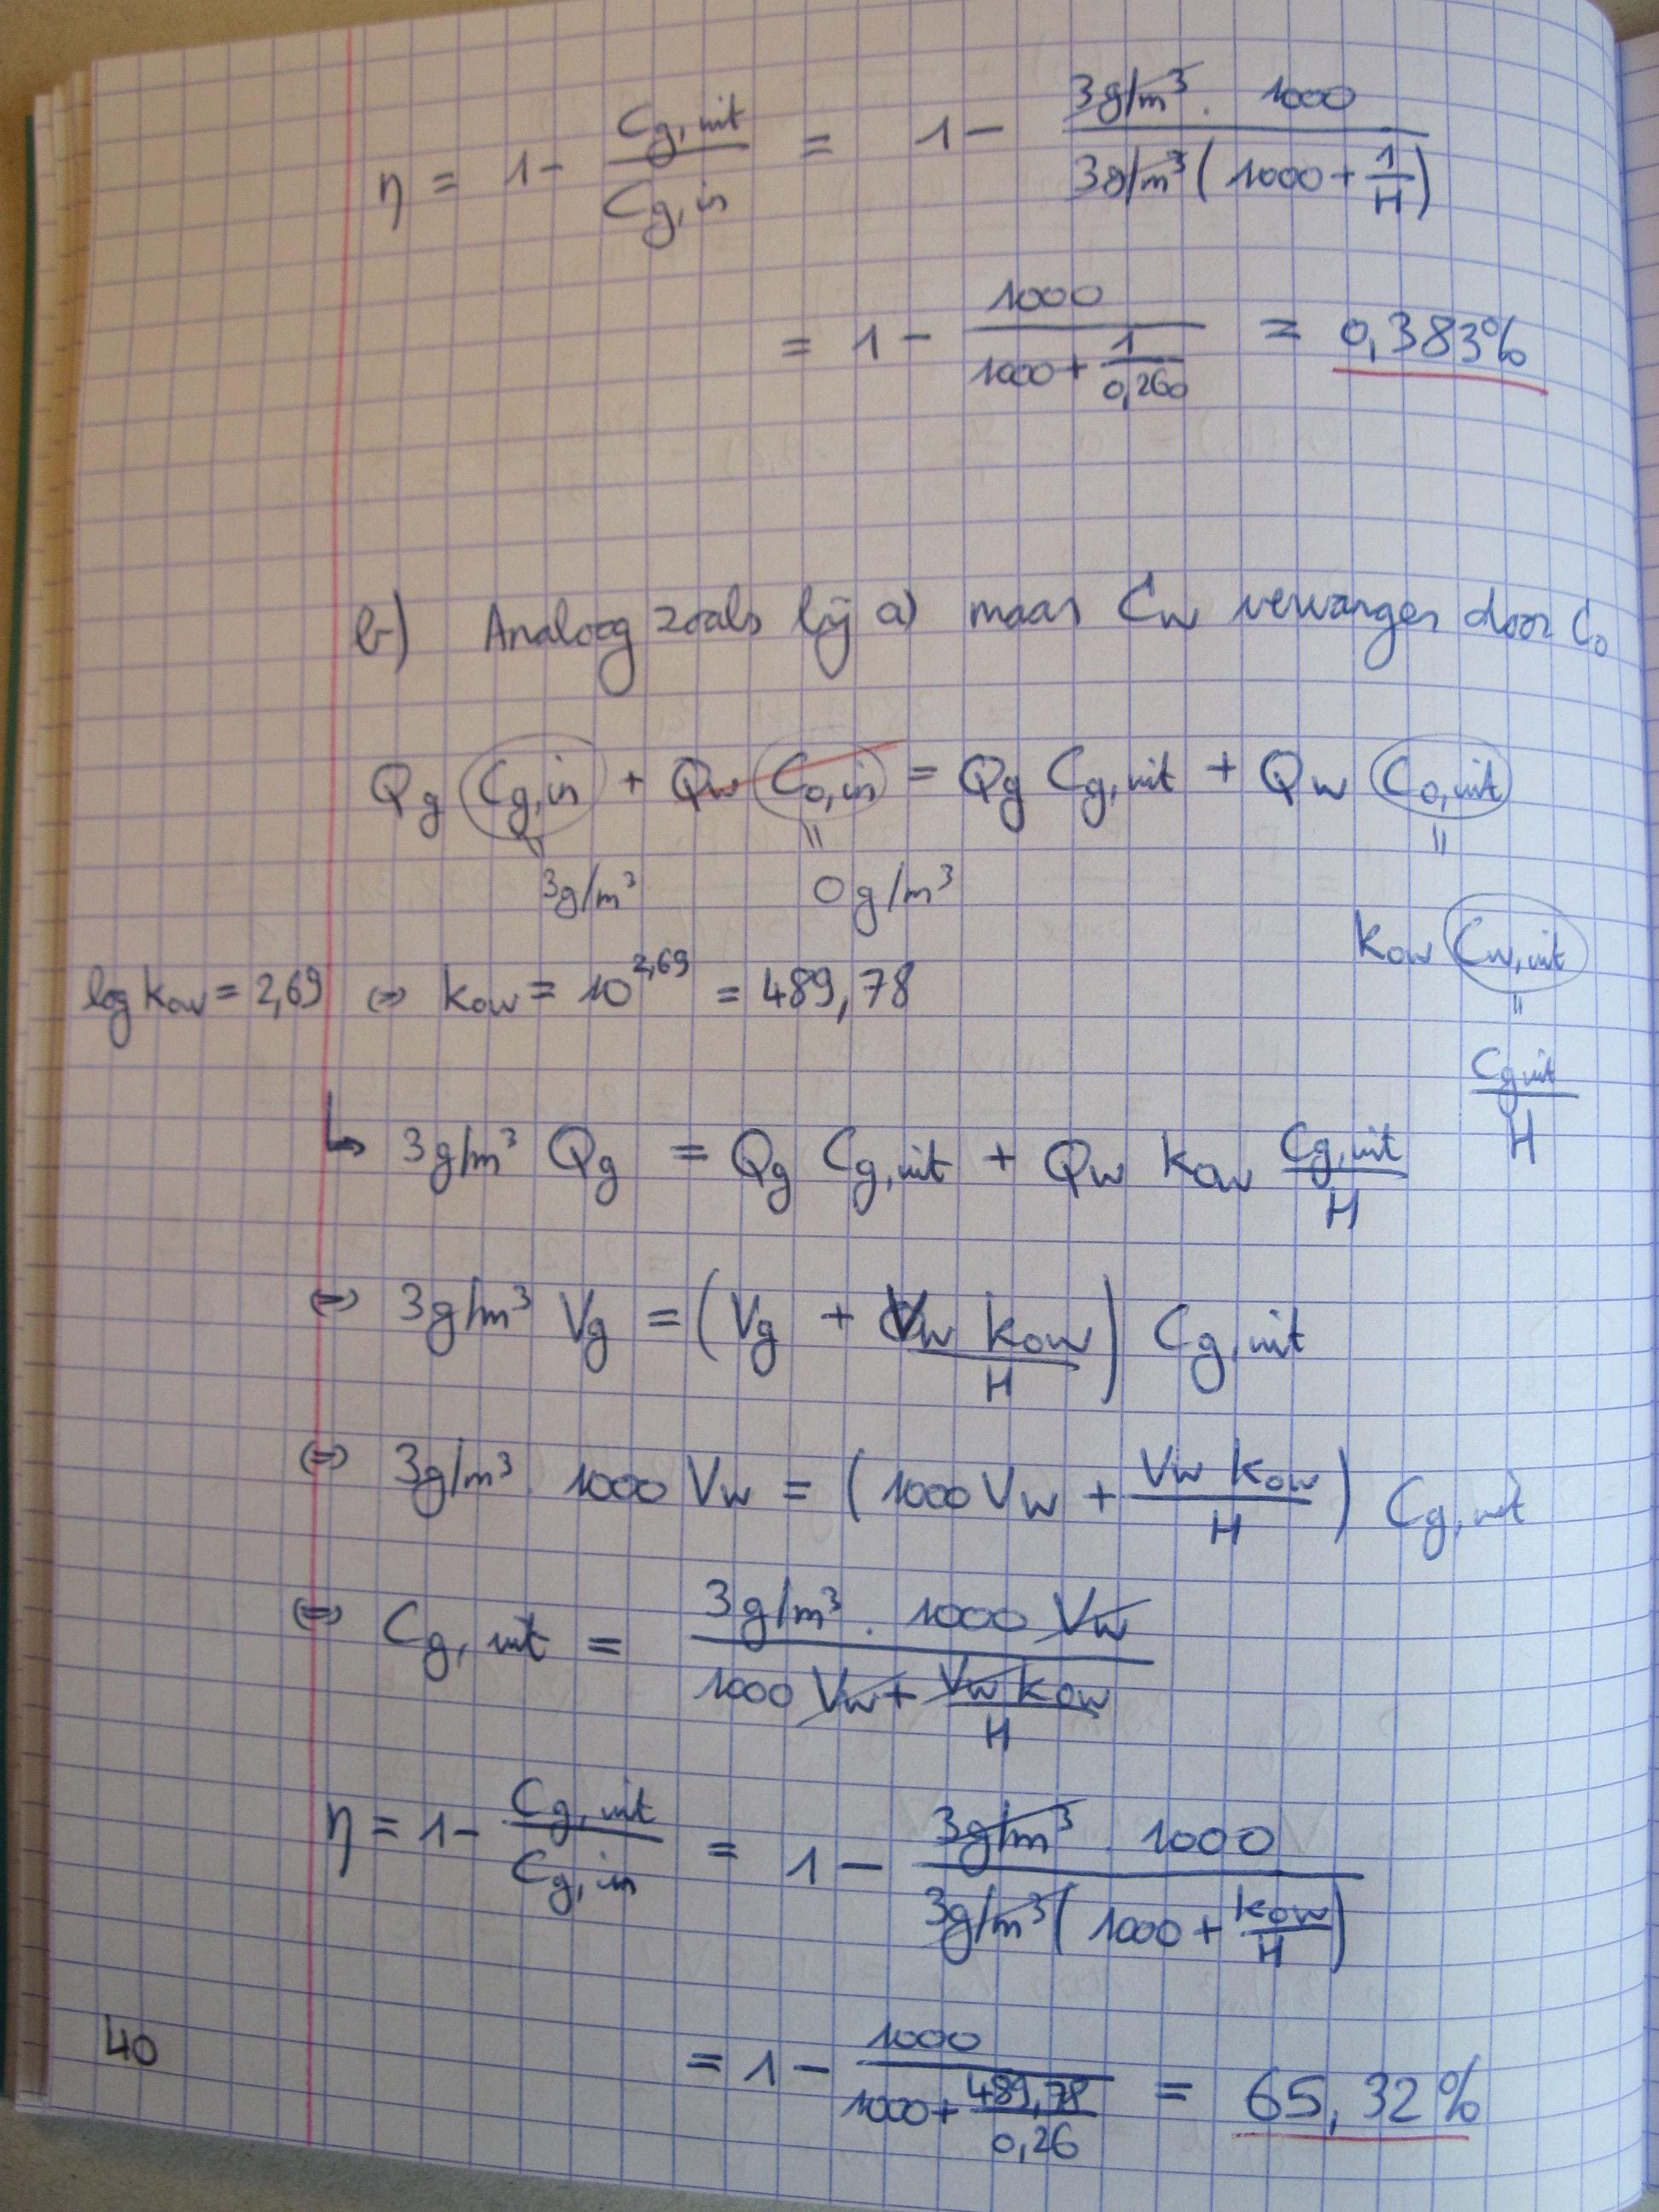 η = 1 - Cg,uit / Cg,in = 1 - 3g/m³ . 1000 / 3g/m³ (1000 + 1/H)
= 1 - 1000 / (1000 + 1/0,260) = 0,383%
b) Analoog zoals bij a) maar Cw vervangen door Co
Qg Cg,in + Qw Co,in = Qg Cg,uit + Qw Co,uit
" " "
3g/m³ 0g/m³
kow Cw,uit
log kow = 2,69 ⇔ kow = 10^2,69 = 489,78
"
Cg,uit / H
↳ 3g/m³ Qg = Qg Cg,uit + Qw kow Cg,uit / H
⇔ 3g/m³ Vg = (Vg + Vw kow / H) Cg,uit
⇔ 3g/m³ . 1000 Vw = (1000 Vw + Vw kow / H) Cg,uit
⇔ Cg,uit = 3g/m³ . 1000 Vw / (1000 Vw + Vw kow / H)
η = 1 - Cg,uit / Cg,in = 1 - 3g/m³ . 1000 / 3g/m³ (1000 + kow / H)
= 1 - 1000 / (1000 + 489,78 / 0,26) = 65,32%
40